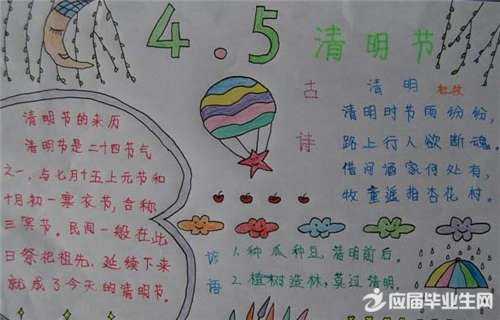 4.5 清明节
清明节的来历
清明节是二十四节气
之一,与七月十五上元节和
十月初一寒衣节,合称
三冥节。民间一般在此
日祭祀祖先,延续下来
就成了今天的清明节。
古诗
清明 杜牧
清明时节雨纷纷,
路上行人欲断魂。
借问酒家何处有,
牧童遥指杏花村。
谚语
1.种瓜种豆,清明前后。
2.植树造林,莫过清明。
应届毕业生网
YJBYS.COM